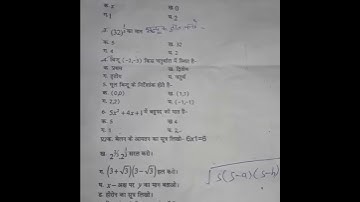 क. s ख. 0
ग. 1 घ. 2
(32) का मान
क. 5 ख. 32
ग. 4 घ. 2
बिन्दु (-3,-3) किस चतुर्थांश में स्थित है-
क. प्रथम ख. द्वितीय
ग. तृतीय घ. चतुर्थ
5. मूल बिन्दु के निर्देशांक होते है-
क. (0,0) ख. (1,1)
ग. 2,2) घ. (-1,-1)
5x² + 4x + 1 में बहुपद की घात है-
क. 5 ख. 4
ग. 3 घ. 2
बेलन के आयतन का सूत्र लिखो। 6x1=6
ख. सरल करो।
ग. (3+√3)(3-√3) हल करो।
घ. x – अक्ष पर y का मान बताओ।
ड. हीरोन का सूत्र लिखो।
√s(s-a)(s-b)